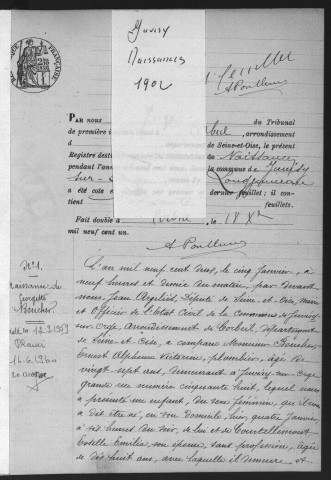 Juvisy
Naissances
1902
1er feuillet
A Poullain
PAR nous
du Tribunal
de première i
arrondissement
de Seine-et-Oise, le présent
Registre desti
Naissances
pendant l'ann
la commune de Juvisy
sur
a été coté
dernier feuillet; il con-
tient
feuillets.
Fait double à
le 18 Xbre
mil neuf cent un.
A Poullain
N° 1.
Naissance de
Boucher
L'an mil neuf cent deux, le cinq Janvier, à
neuf heures et demie du matin, par devant
nous, Jean Argeliès, Député de Seine et Oise, Maire
et Officier de l'Etat Civil de la Commune de Juvisy
sur Orge, Arrondissement de Corbeil, département
de Seine et Oise, a comparu Monsieur Boucher
Ernest Alphonse Victorien, plombier, âgé de
vingt sept ans, demeurant à Juvisy sur Orge
grande rue numéro cinquante huit, lequel nous
a présenté un enfant, du sexe féminin, qu'il nous
a dit être né, en son domicile, hier, quatre Janvier
à six heures du soir, de lui et de Courtellemont
Emilia, son épouse, sans profession, âgée
de dix huit ans, avec laquelle il demeure et